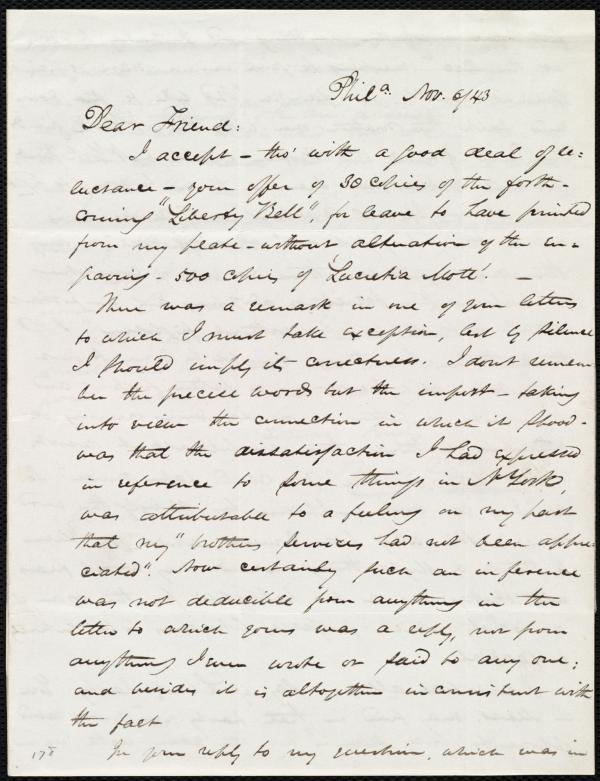 Philª. Nov. 6/43
Dear Friend:
I accept – tho' with a good deal of re=
luctance – your offer of 30 copies of the forth-
coming "Liberty Bell", for leave to have printed
from my plate – without alteration of the en=
graving – 500 copies of 'Lucretia Mott'. –
There was a remark in one of your letters
to which I must take exception, lest by silence
I should imply its correctness. I dont remem
ber the precise words but the import – taking
into view the connection in which it stood –
was that the dissatisfaction I had expressed
in reference to some things in N. York,
was attributable to a feeling on my part
that my "brothers services had not been appre
ciated". Now certainly such an inference
was not deducible from anything in the
letter to which yours was a reply, nor from
anything I ever wrote or said to any one;
and besides it is altogether inconsistent with
the fact
In your reply to my question, which was in